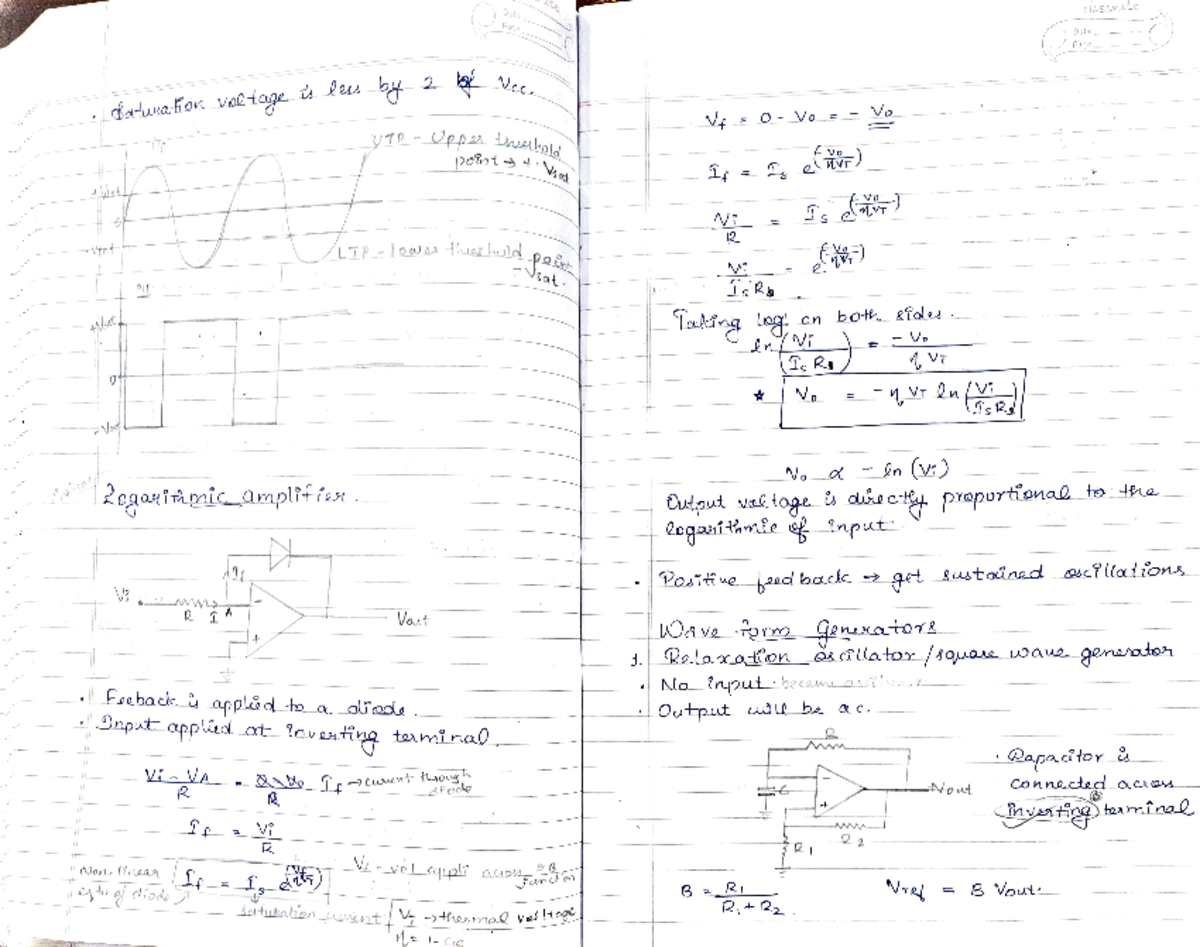 Date
Page
. Saturation voltage is less by 2 of Vcc.
UTP - Upper threshold
point → + Vsat
+Vsat
0
-Vsat
LTP - lower threshold point
- Vsat.
+Vsat
0
-Vsat
Logarithmic amplifier.
If
Vi
R I A
-
+
Vout
. Feeback is applied to a diode.
. Input applied at inverting terminal.
Vi - VA / R = If → current through diode
If = Vi / R
Non-linear eqn of diode
If = Is e^(Vf/ηVT)
Vf - vol appli across junction
saturation current
VT → thermal voltage
η = 1 -
classmate
Date
Page
Vf = 0 - Vo = - Vo
If = Is e^(-Vo/ηVT)
Vi / R = Is e^(-Vo/ηVT)
Vi / Is R = e^(-Vo/ηVT)
Taking log on both sides.
ln (Vi / Is R) = - Vo / η VT
★ Vo = - η VT ln (Vi / Is R)
Vo α - ln (Vi)
Output voltage is directly proportional to the
logarithmic of input.
. Positive feedback → get sustained oscillations
Wave form Generators
1. Relaxation oscillator / square wave generator
. No input
. Output will be ac.
R
C
-
+
Vout
R1
R2
. Capacitor is
connected across
inverting terminal
B = R1 / R1 + R2
Vref = B Vout.